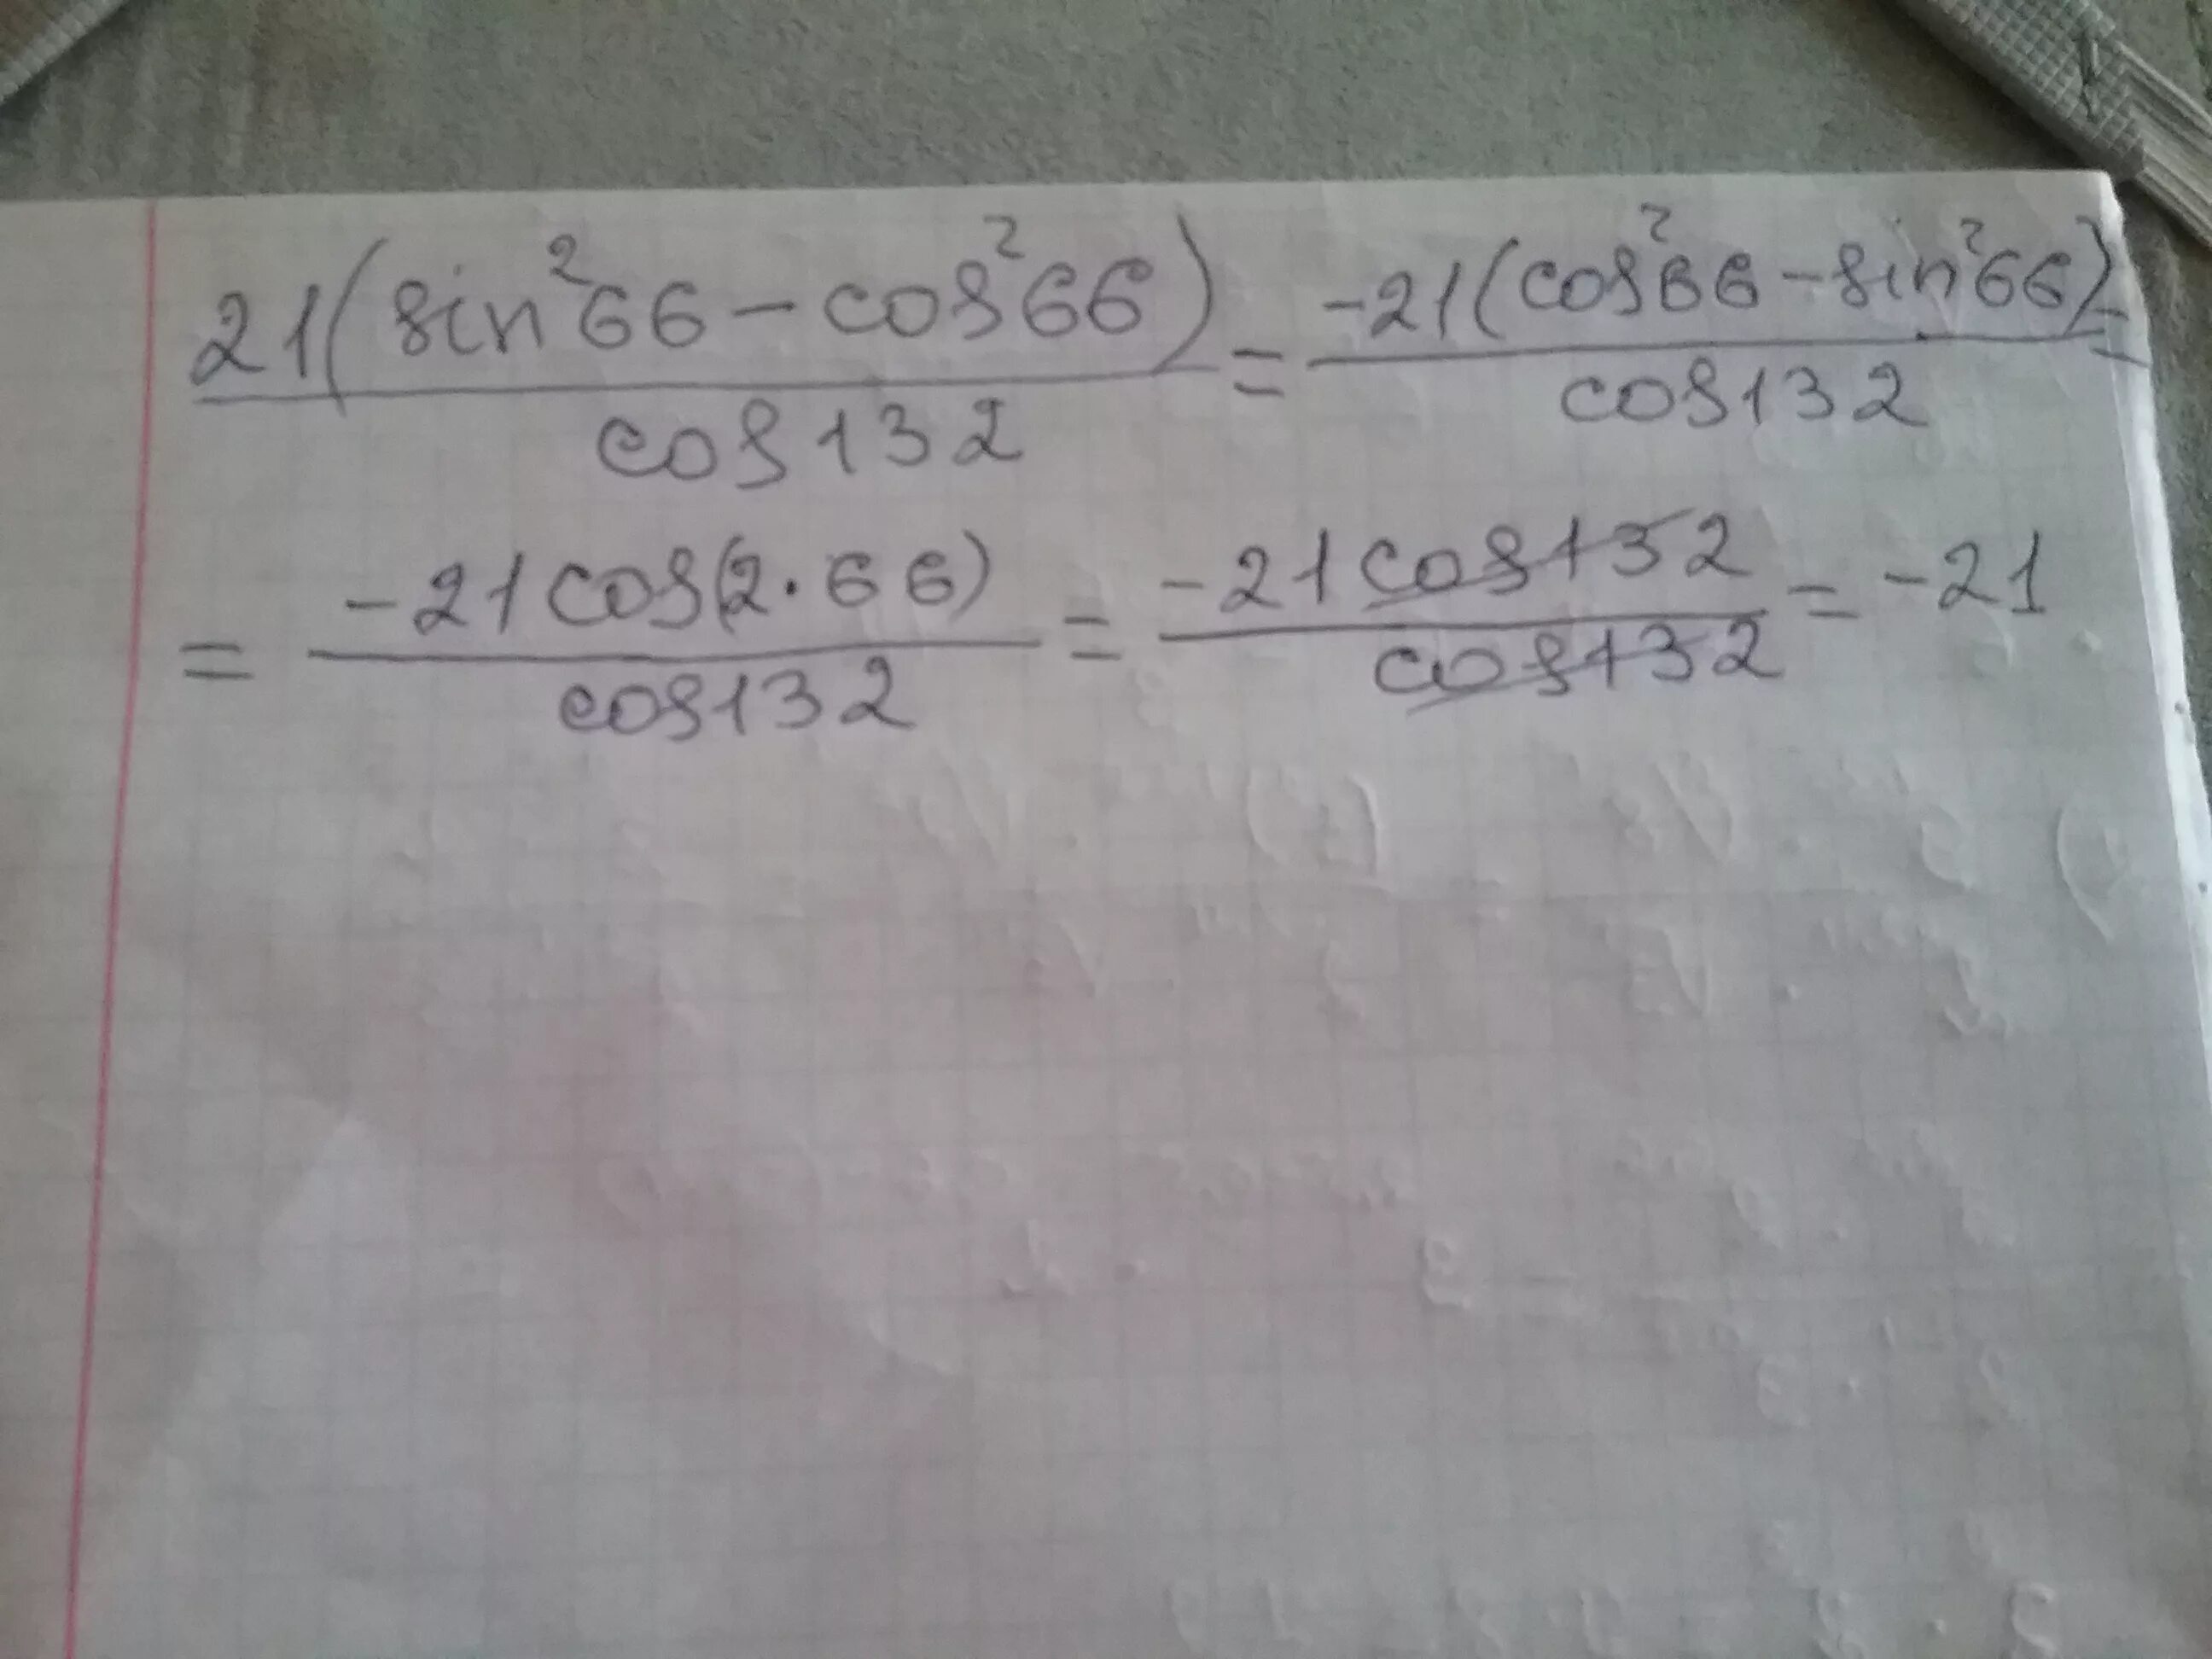 21(sin²66 - cos²66) / cos132 = -21(cos²66 - sin²66) / cos132 =
= -21cos(2·66) / cos132 = -21cos132 / cos132 = -21